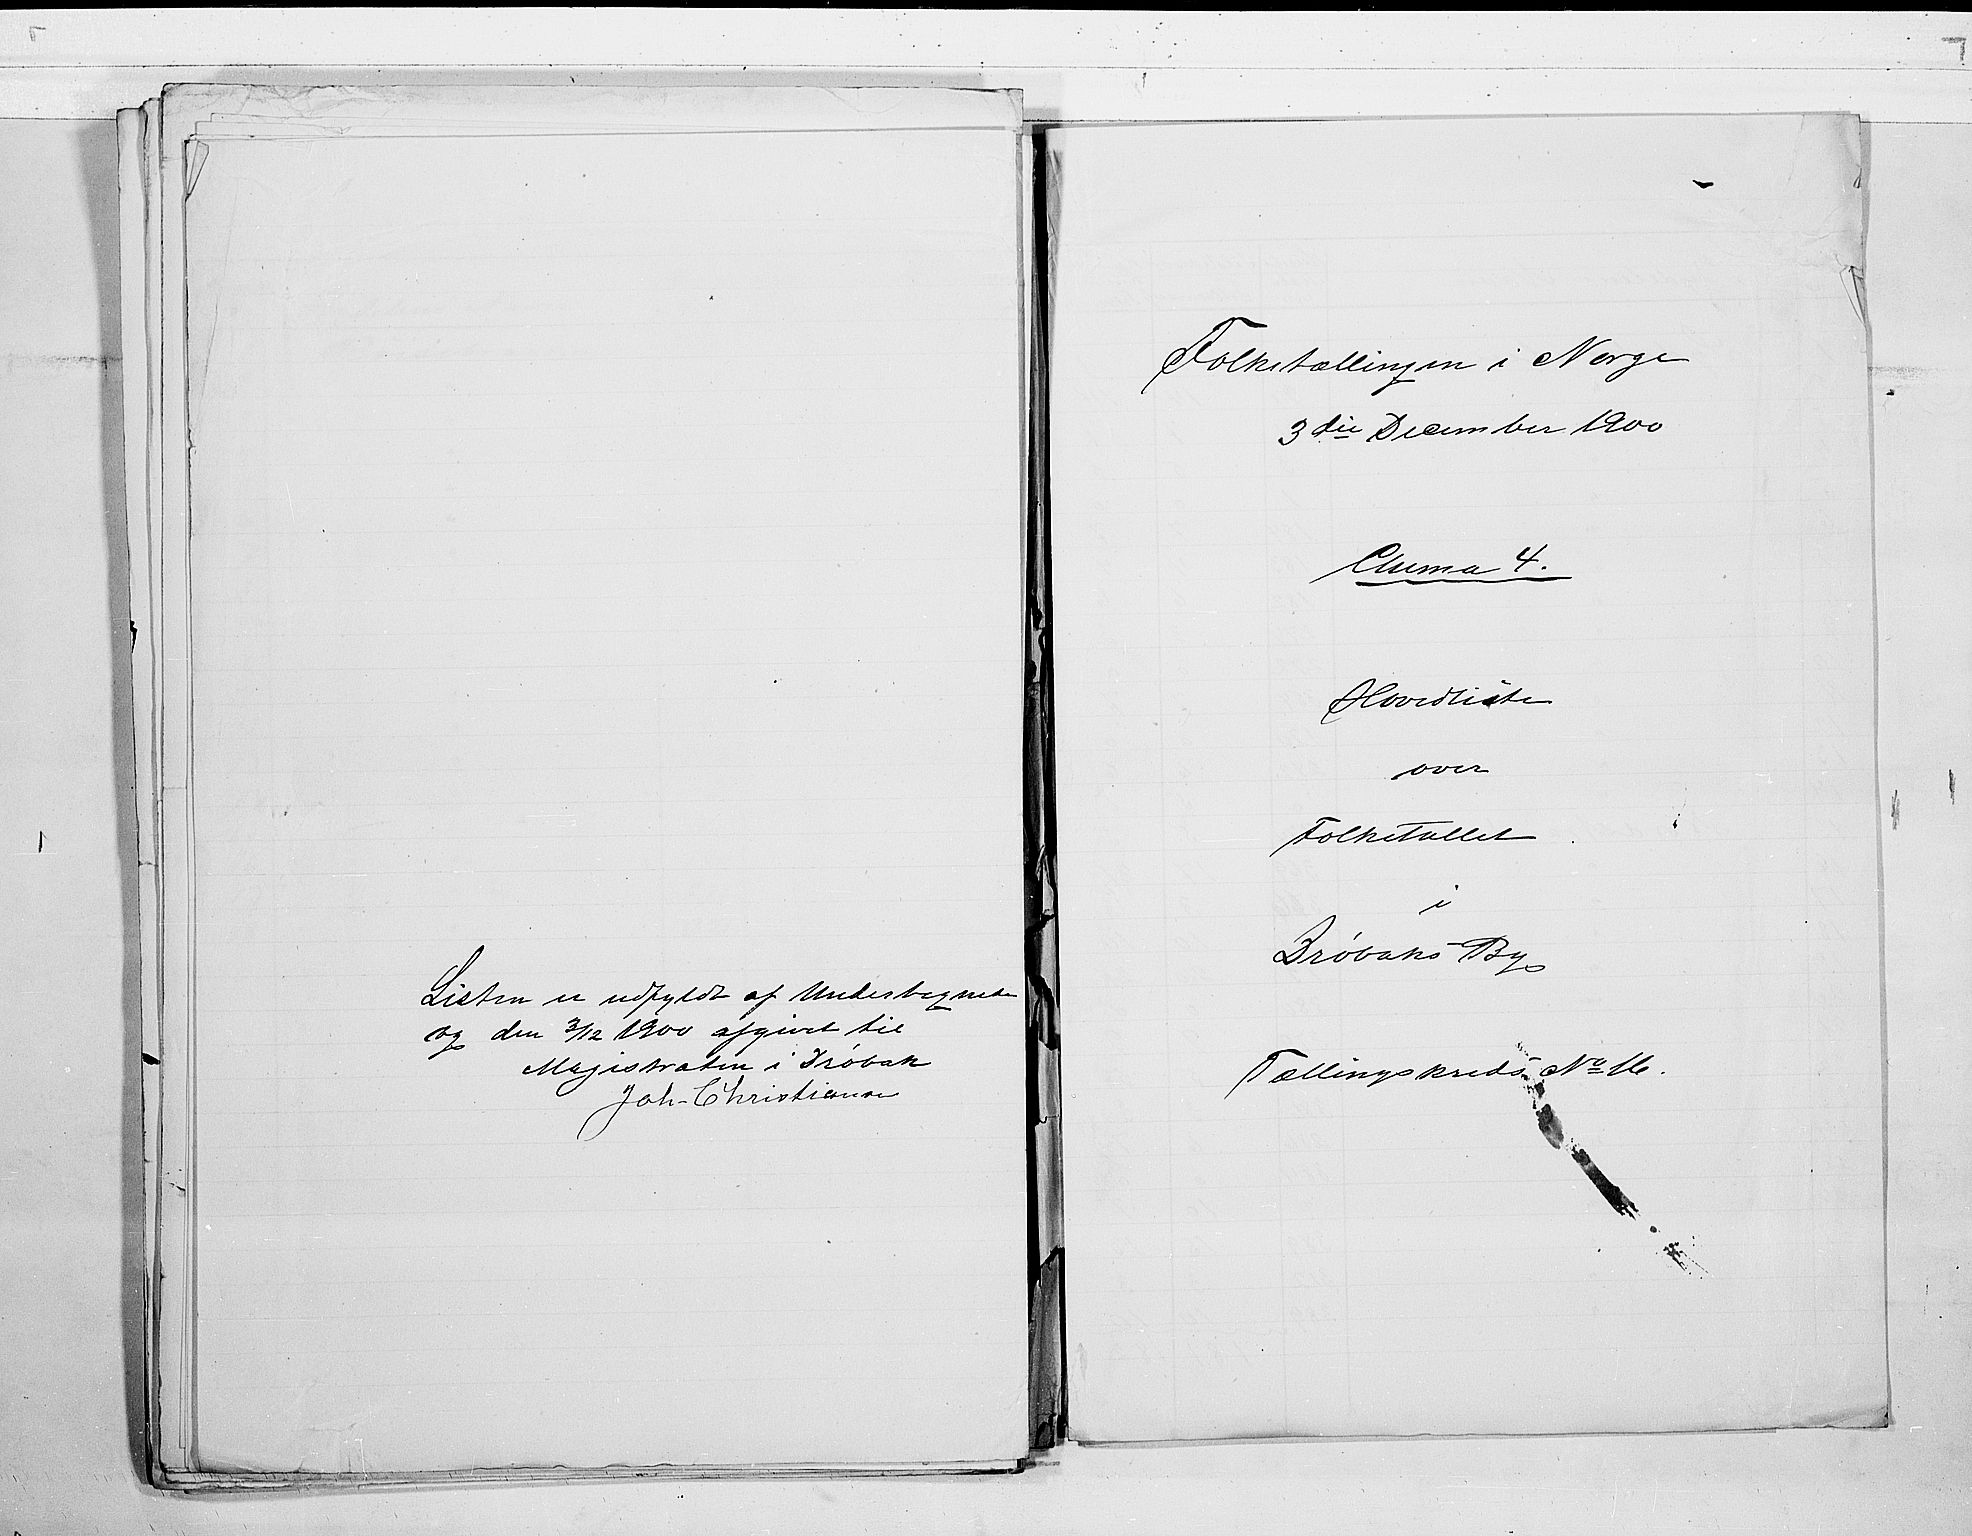 Listen er udfyldt af Undertegnede
og den 3/12 1900 afgivet til
Magistraten i Drøbak
Joh. Christiansen
Folketællingen i Norge
3die December 1900
Skema 4.
Hovedliste
over
Folketallet
i
Drøbaks By
Tællingskreds No